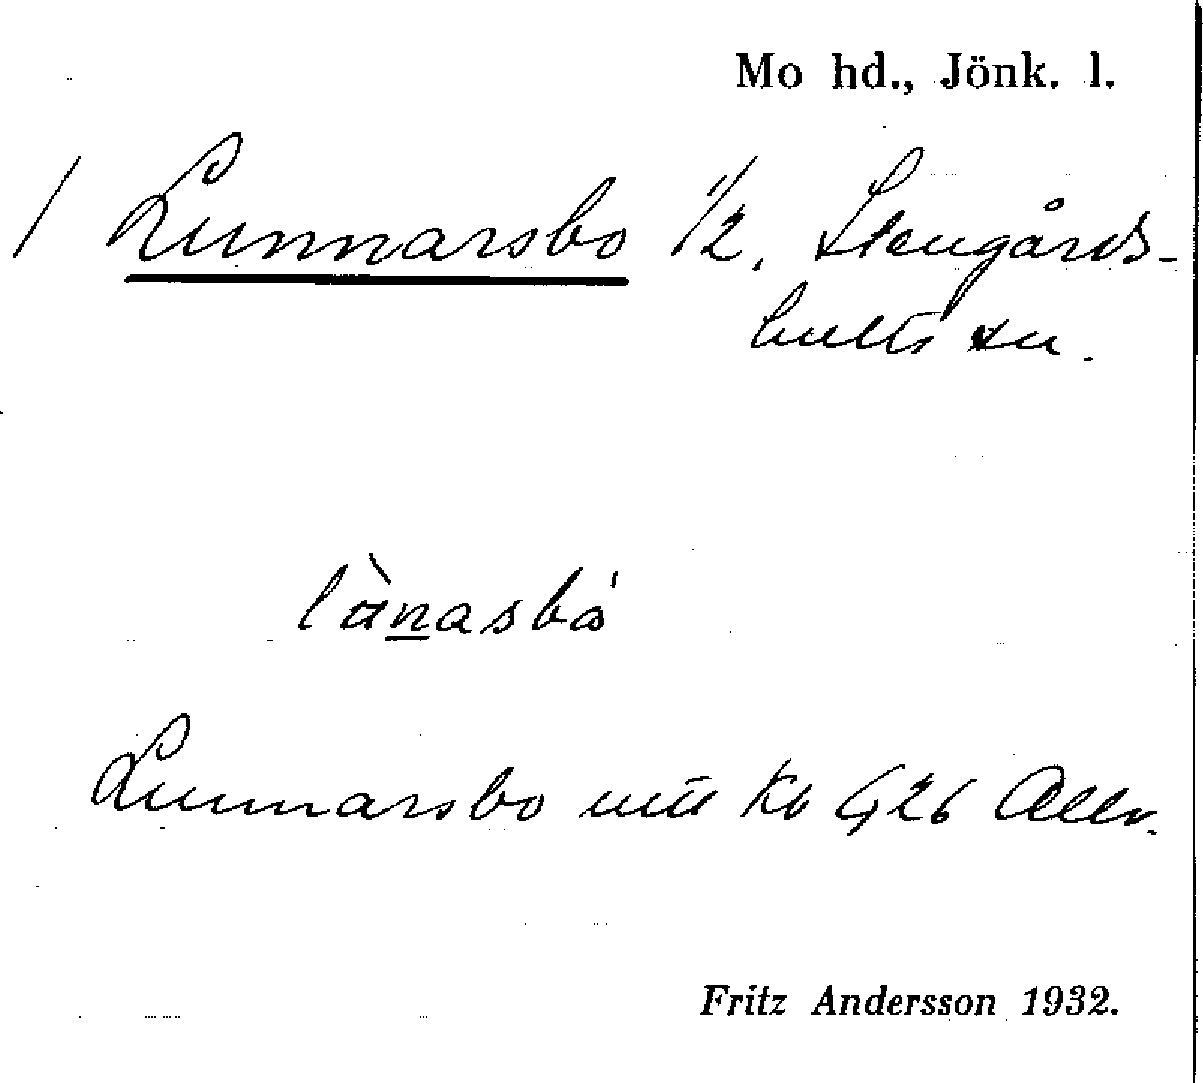 Mo hd., Jönk. l.
/ Lunnarsbo 1/2. Stengårds-
hults sn.
lànasbå
Lunnarsbo utt Kb G26 Allv.
Fritz Andersson 1932.